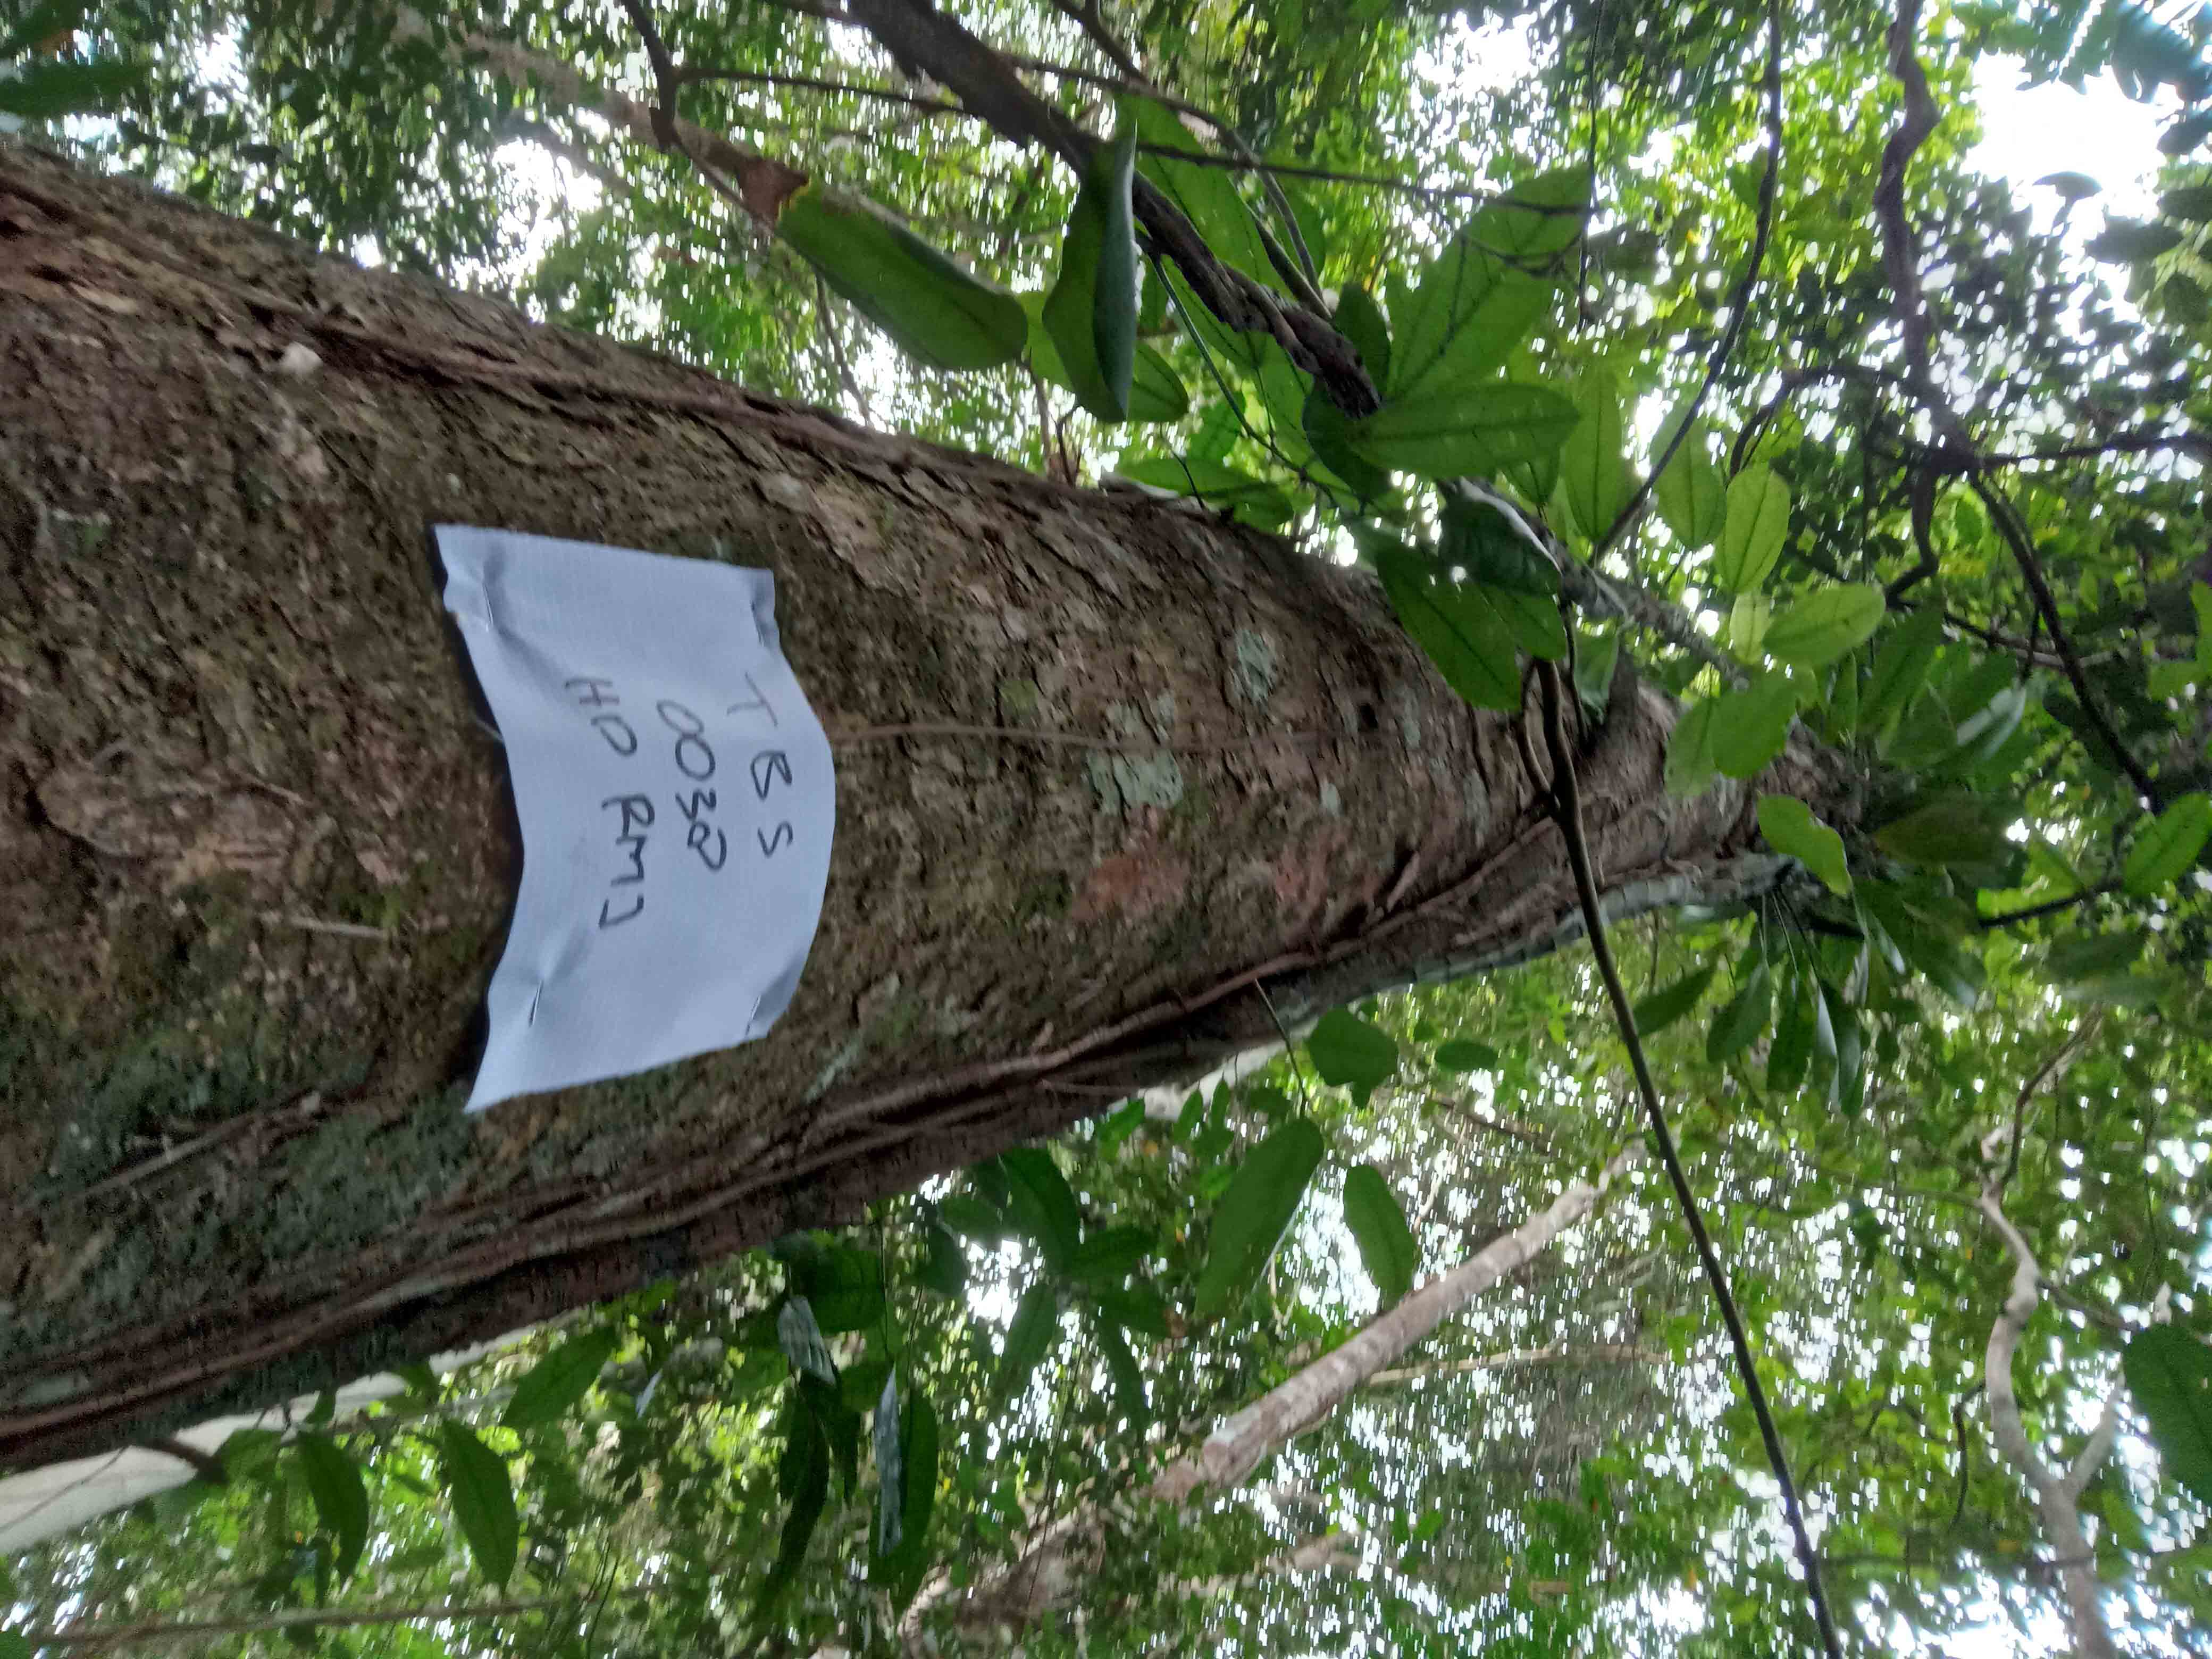 TBS
0030
HD RMJ